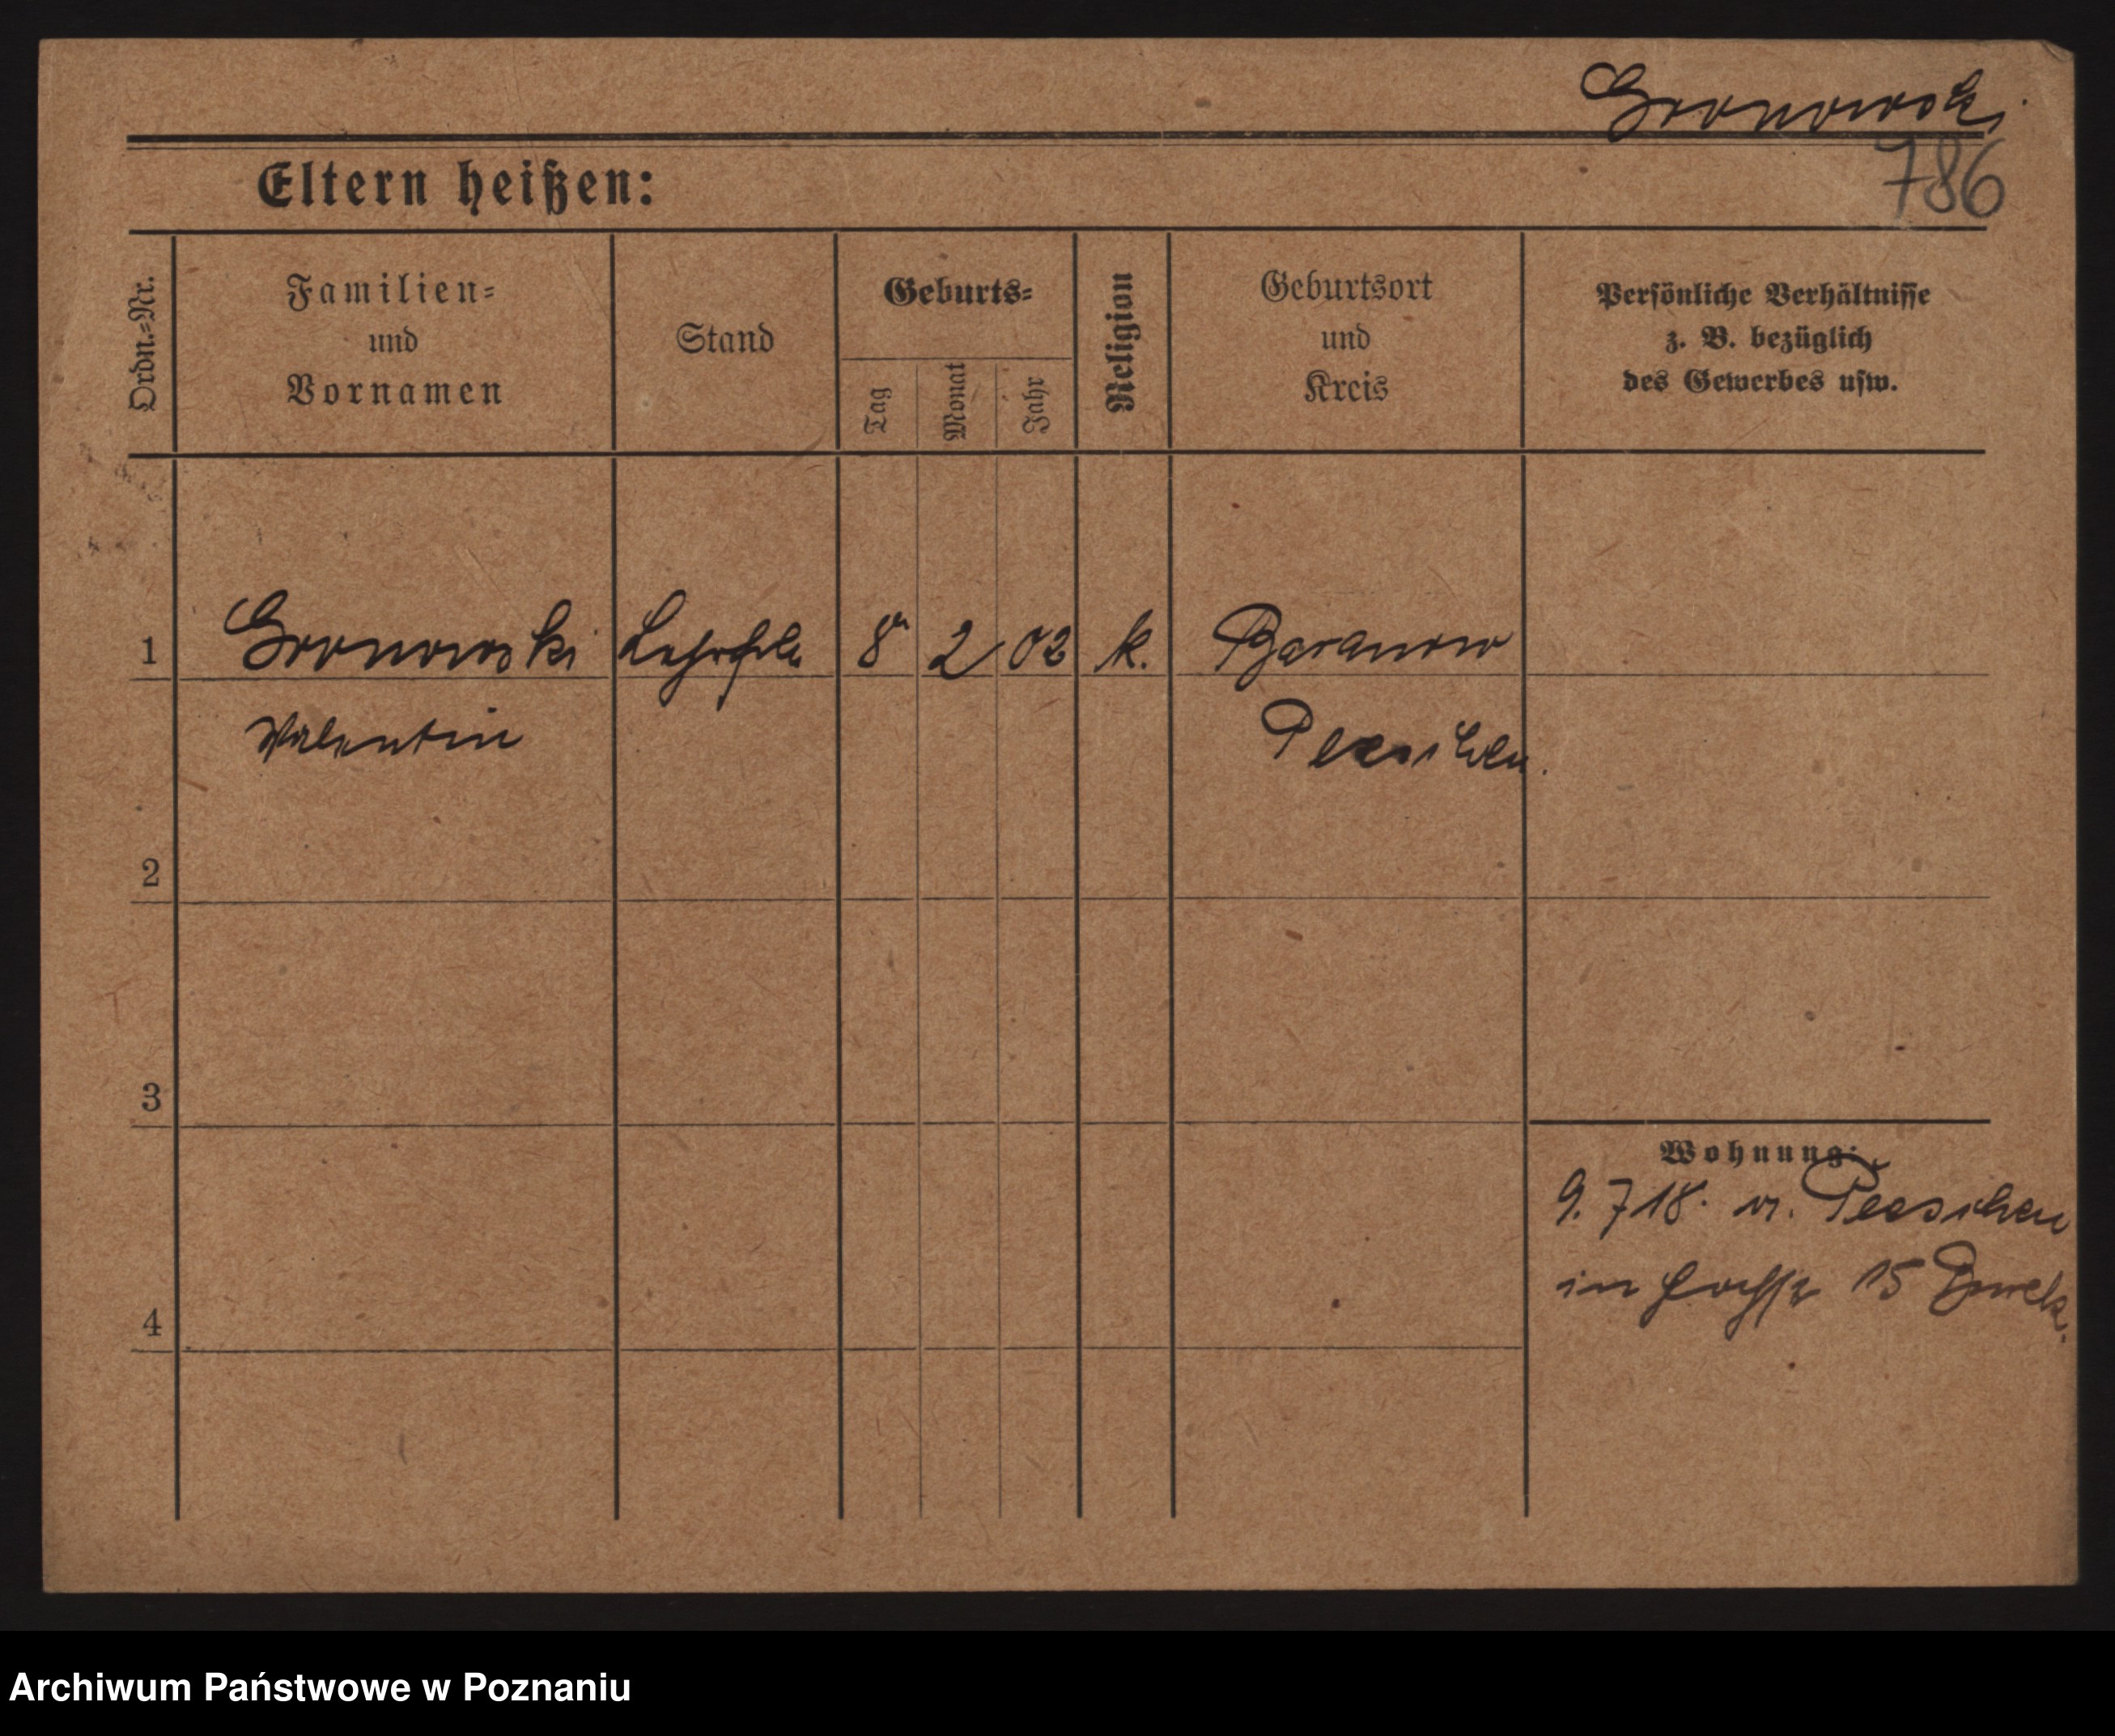 Gronowski
786
Eltern heißen:
Ordn.=Nr.
Familien=
und
Vornamen
Stand
Geburts=
Tag
Monat
Jahr
Religion
Geburtsort
und
Kreis
Persönliche Verhältnisse
z. B. bezüglich
des Gewerbes usw.
1 Gronowski 8 2 02 k. Baranow
Valentin Pleschen.
2
3
4
Wohnung:
9. 7 18. v. Pleschen
in 15
Archiwum Państwowe w Poznaniu